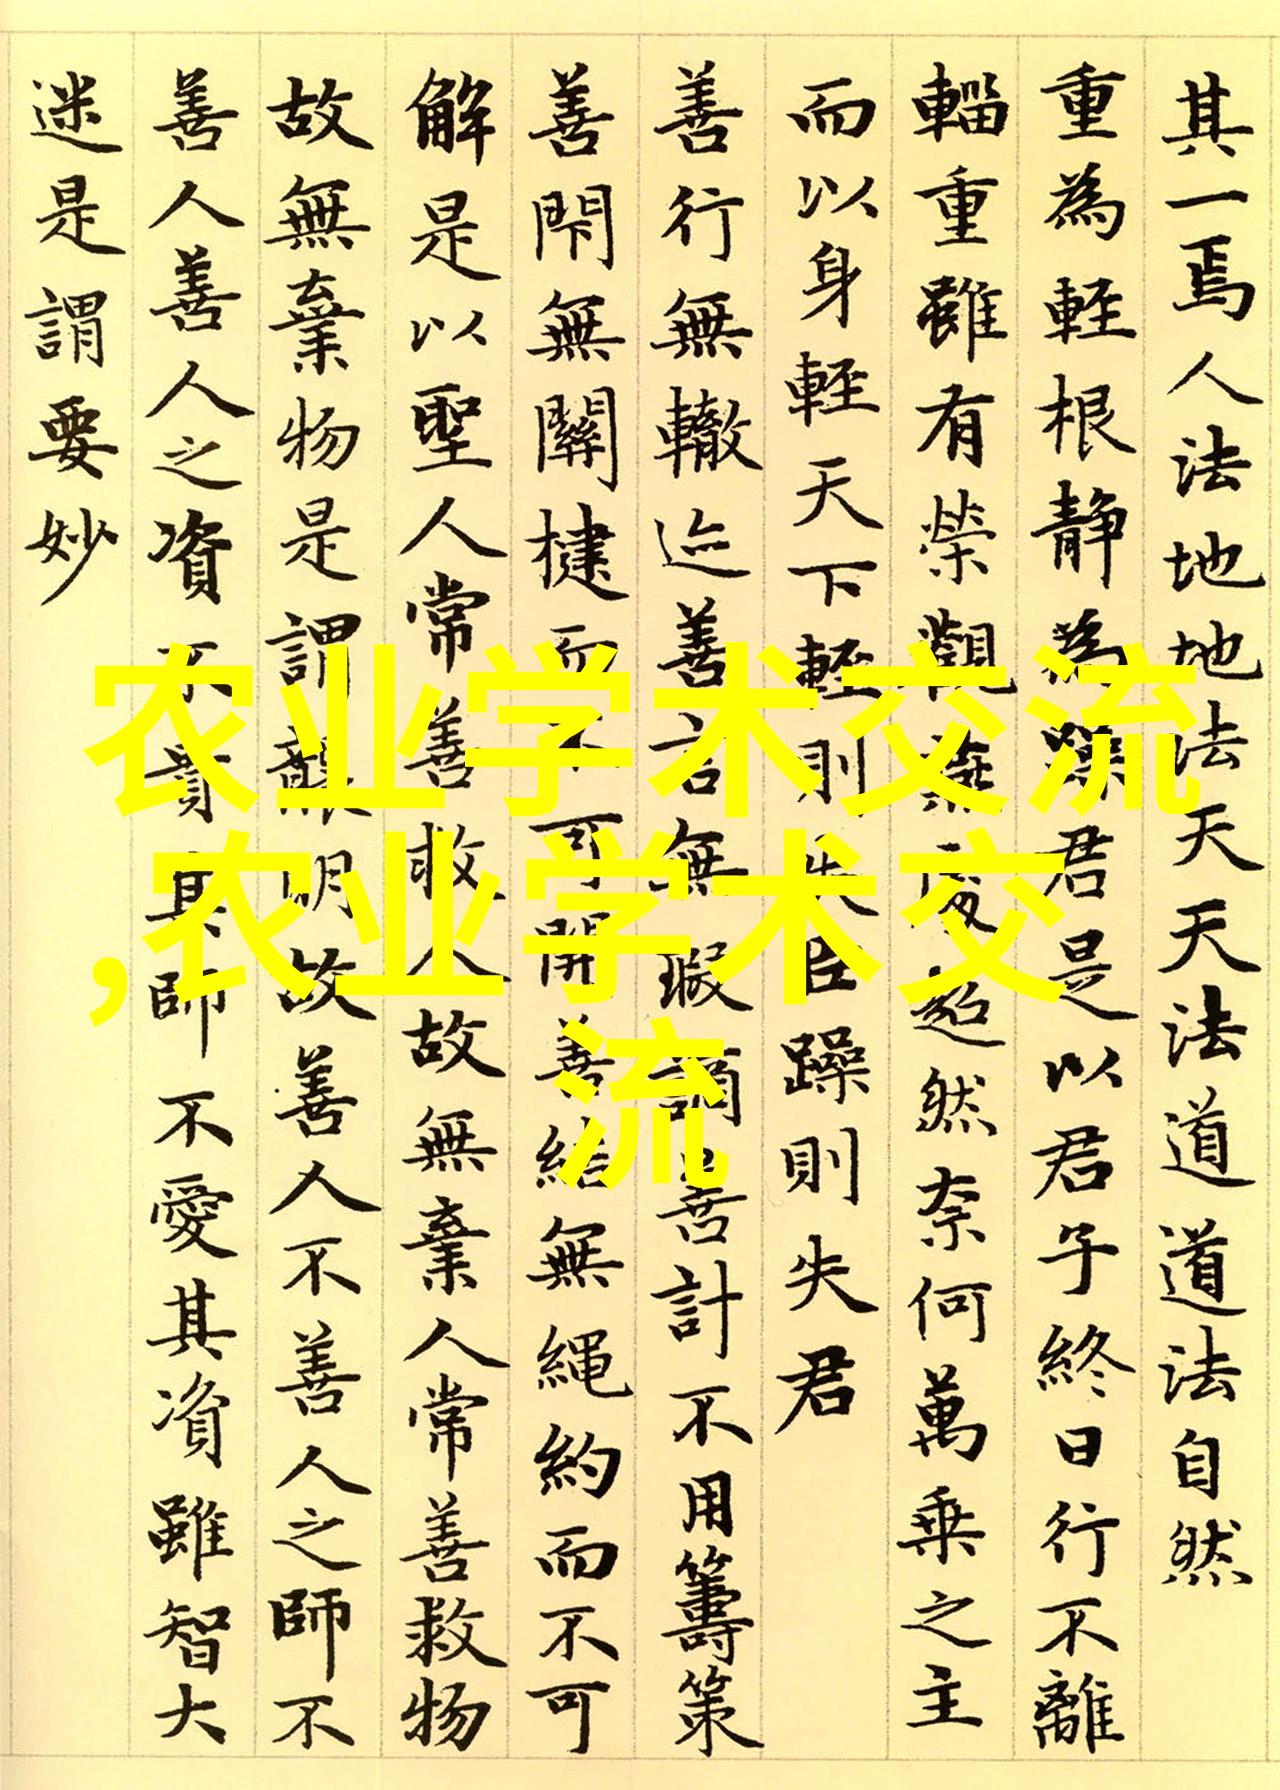 其一焉人法地地法天天法道道法自然
重為輕根靜為躁君是以君子終日行不離
輜重雖有榮觀燕處超然奈何萬乘之主
而以身輕天下輕則失臣躁則失君
善行無轍迹善言無瑕謫善計不用籌策
善閇無關楗而不可開善結無繩約而不可
解是以聖人常善救人故無棄人常善救物
故無棄物是謂襲明故善人不善人之師不
善人善人之資不貴其師不愛其資雖智大
迷是謂要妙
农业学术交流
,农业学术交
流